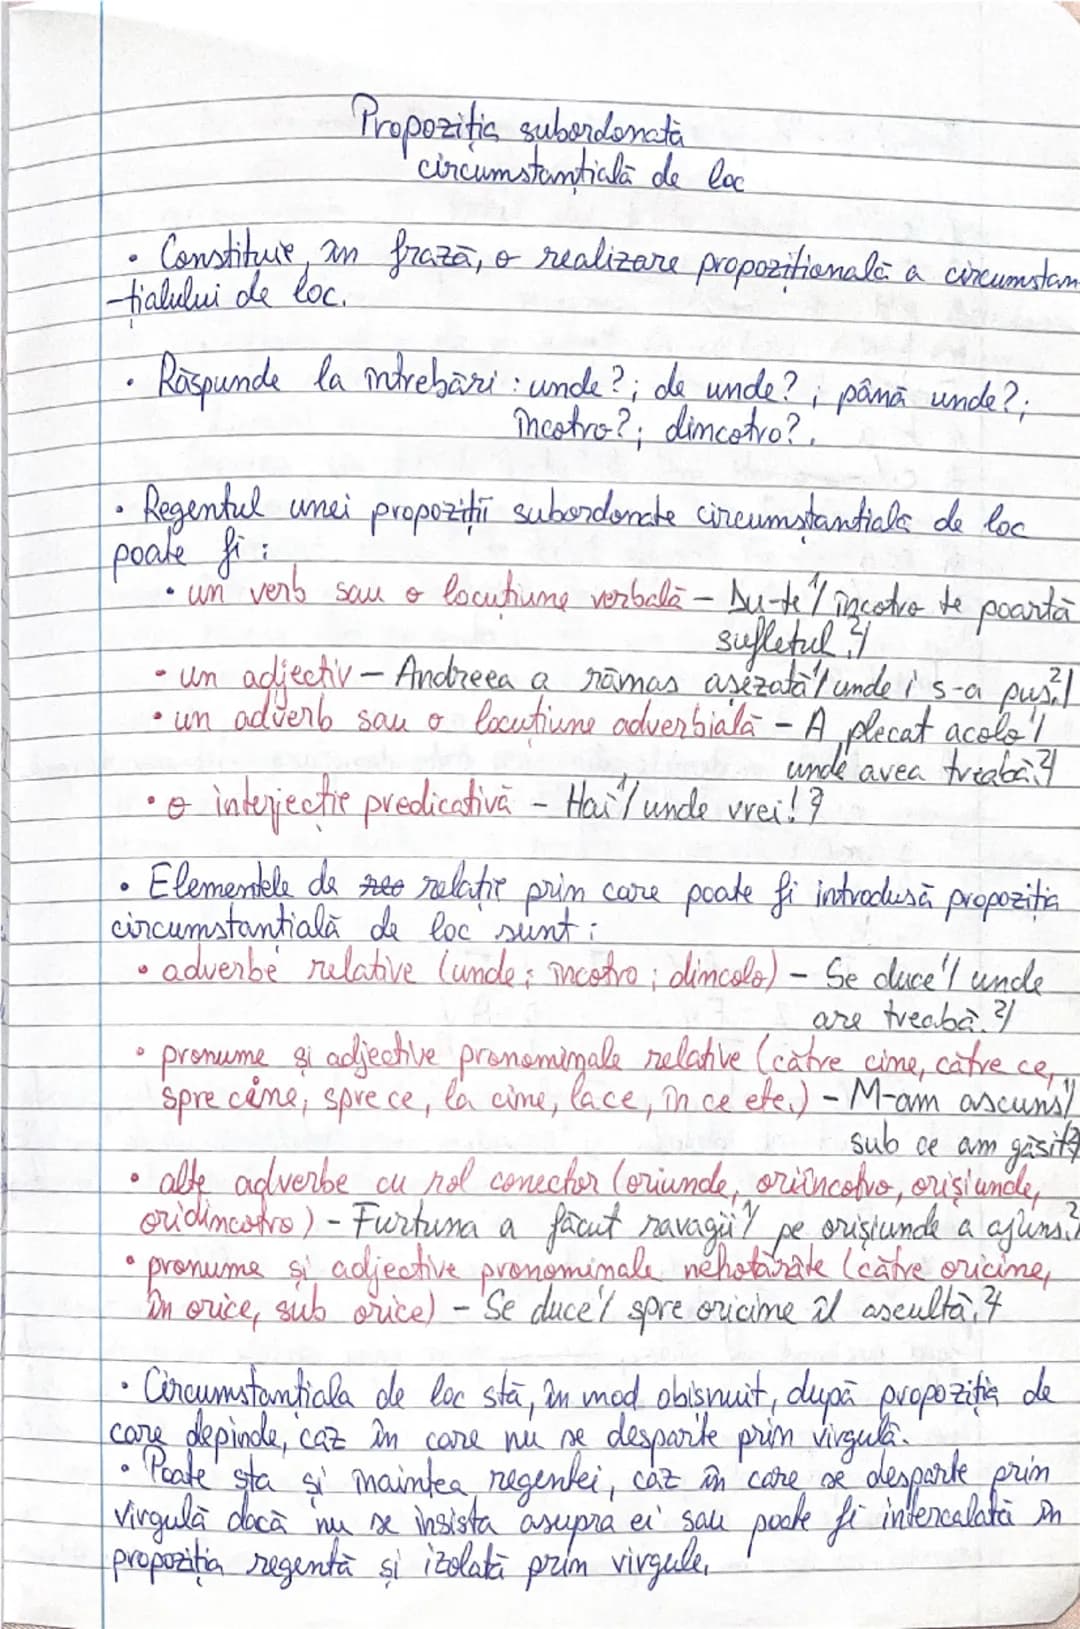 Propoziția subordonată
circumstanțială de loc
• Constituie, în frază, o realizare propozițională a circumstan-
țialului de loc.
• Răspunde la întrebări : unde?; de unde?; până unde?;
încotro?; dincotro?.
• Regentul unei propoziții subordonate circumstanțiale de loc
poate fi :
• un verb sau o locuțiune verbală – Du-te 1/ încotro te poartă
sufletul. 2/
• un adjectiv – Andreea a rămas așezată 1/ unde i s-a pus. 2/
• un adverb sau o locuțiune adverbială – A plecat acolo 1/
unde avea treabă. 2/
• o interjecție predicativă – Hai 1/ unde vrei! 2/
• Elementele de relație prin care poate fi introdusă propoziția
circumstanțială de loc sunt :
• adverbe relative (unde; încotro; dincolo) – Se duce 1/ unde
are treabă. 2/
• pronume și adjective pronominale relative (către cine, către ce,
spre cine, spre ce, la cine, la ce, în ce etc.) – M-am ascuns 1/
sub ce am găsit. 2/
• alte adverbe cu rol conector (oriunde, oriîncotro, orișiunde,
oridincotro) – Furtuna a făcut ravagii 1/ pe orișiunde a ajuns. 2/
• pronume și adjective pronominale nehotărâte (către oricine,
în orice, sub orice) – Se duce 1/ spre oricine îl ascultă. 2/
• Circumstanțiala de loc stă, în mod obisnuit, după propoziția de
care depinde, caz în care nu se desparte prin virgulă.
• Poate sta și înaintea regentei, caz în care se desparte prin
virgulă dacă nu se insista asupra ei sau poate fi intercalată în
propoziția regentă și izolată prin virgule.